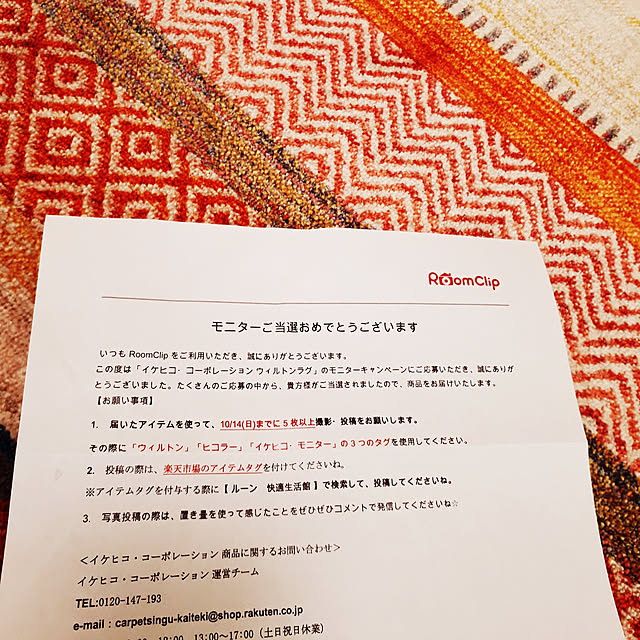 RoomClip
モニターご当選おめでとうございます
いつも RoomClip をご利用いただき、誠にありがとうございます。
この度は「イケヒコ・コーポレーション ウィルトンラグ」のモニターキャンペーンにご応募いただき、誠にありが
とうございました。たくさんのご応募の中から、貴方様がご当選されましたので、商品をお届けいたします。
【お願い事項】
1. 届いたアイテムを使って、10/14(日)までに 5 枚以上撮影・投稿をお願いします。
その際に「ウィルトン」「ヒコラー」「イケヒコ・モニター」の 3 つのタグを使用してください。
2. 投稿の際は、楽天市場のアイテムタグを付けてくださいね。
※アイテムタグを付与する際に【 ルーン 快適生活館 】で検索して、投稿してくださいね。
3. 写真投稿の際は、置き畳を使って感じたことをぜひぜひコメントで発信してくださいね☆
＜イケヒコ・コーポレーション 商品に関するお問い合わせ＞
イケヒコ・コーポレーション 運営チーム
TEL:0120-147-193
e-mail : carpetsingu-kaiteki@shop.rakuten.co.jp
13:00～17:00（土日祝日休業）